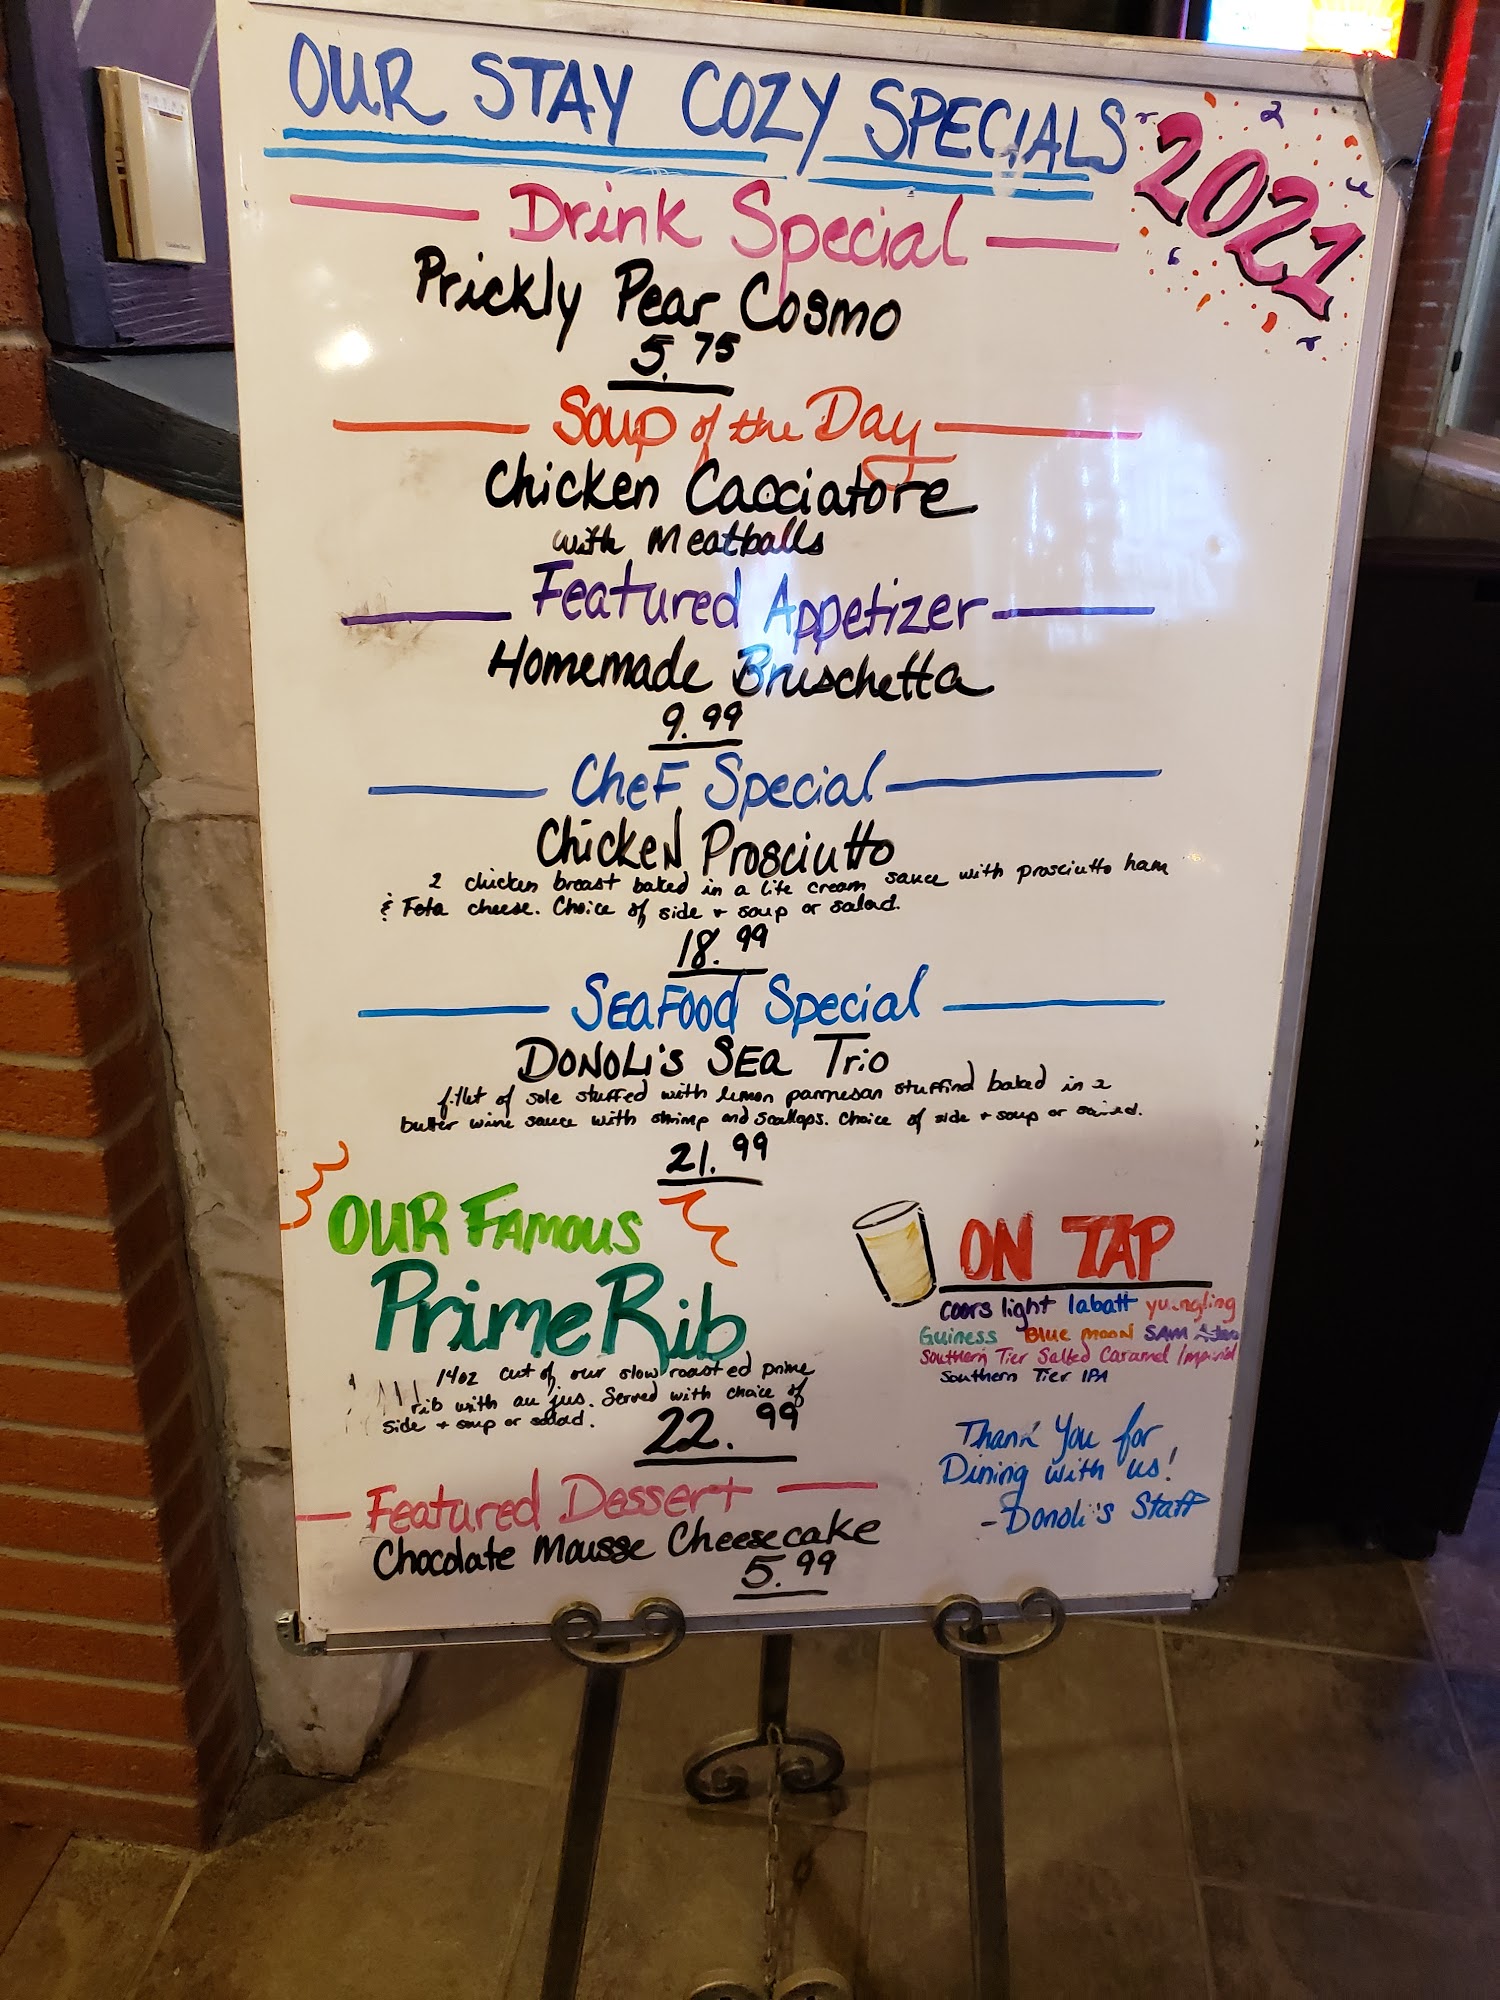 OUR STAY COZY SPECIALS
2021
Drink Special
Prickly Pear Cosmo
5.75
Soup of the Day
Chicken Cacciatore
with Meatballs
Featured Appetizer
Homemade Bruschetta
9.99
Chef Special
Chicken Prosciutto
2 chicken breast baked in a lite cream sauce with prosciutto ham
& Feta cheese. Choice of side + soup or salad.
18.99
Seafood Special
Donoli's Sea Trio
fillet of sole stuffed with lemon parmesan stuffind baked in a
butter wine sauce with shrimp and scallops. Choice of side + soup or salad.
21.99
OUR FAMOUS
Prime Rib
14oz cut of our slow roasted prime
rib with au jus. Served with choice of
side + soup or salad.
22.99
Featured Dessert
Chocolate Mousse Cheesecake
5.99
ON TAP
Coors light labatt yuengling
Guiness Blue moon SAM
Southern Tier Salted Caramel Imperial
Southern Tier IPA
Thank You for
Dining with us!
-Donoli's Staff